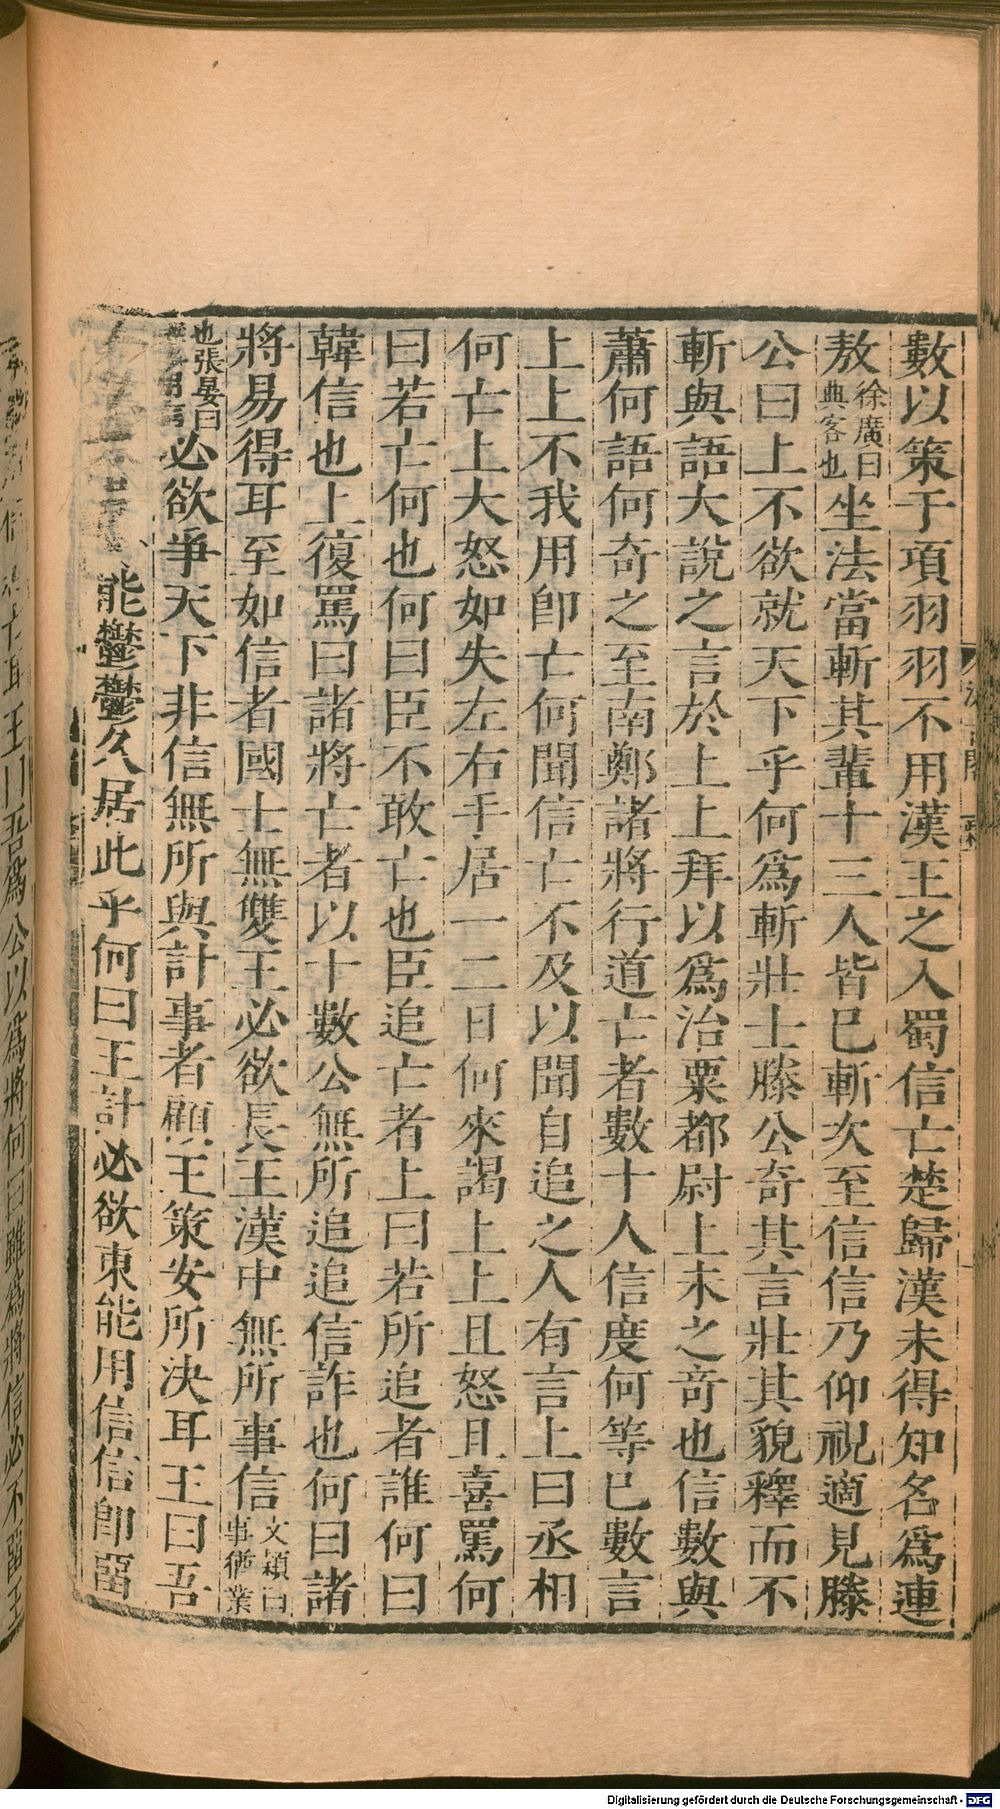 數以策于項羽羽不用漢王之入蜀信亡楚歸漢未得知名爲連
敖徐廣曰典客也坐法當斬其輩十三人皆已斬次至信信乃仰視適見滕
公曰上不欲就天下乎何爲斬壯士滕公奇其言壯其貌釋而不
斬與語大說之言於上上拜以爲治粟都尉上未之奇也信數與
蕭何語何奇之至南鄭諸將行道亡者數十人信度何等已數言
上上不我用卽亡何聞信亡不及以聞自追之人有言上曰丞相
何亡上大怒如失左右手居一二日何來謁上上且怒且喜罵何
曰若亡何也何曰臣不敢亡也臣追亡者上曰若所追者誰何曰
韓信也上復罵曰諸將亡者以十數公無所追追信詐也何曰諸
將易得耳至如信者國士無雙王必欲長王漢中無所事信文穎曰事猶業
也張晏曰必欲爭天下非信無所與計事者顧王策安所決耳王曰吾
能鬱鬱久居此乎何曰王計必欲東能用信信卽留
王曰吾爲公以爲將何曰雖爲將信必不留王
Digitalisierung gefördert durch die Deutsche Forschungsgemeinschaft - DFG